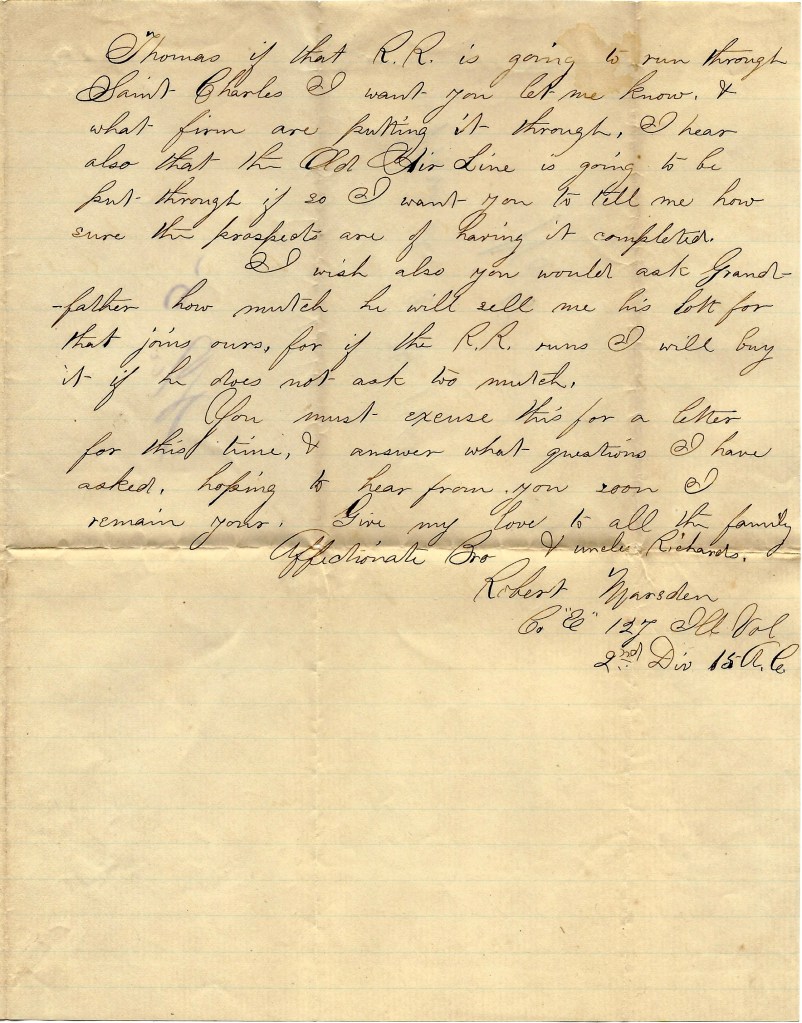 Thomas if that R.R. is going to run through
Saint Charles I want you let me know. &
what firm are putting it through, I hear
also that the Old Air Line is going to be
put through if so I want you to tell me how
sure the prospects are of having it completed.
I wish also you would ask Grand-
-father how mutch he will sell me his lott for
that joins ours, for if the R.R. runs I will buy
it if he does not ask too mutch.
You must excuse this for a letter
for this time, & answer what questions I have
asked. hoping to hear from you soon I
remain your. Give my love to all the family
Affectionate Bro & uncle Richards.
Robert Marsden
Co "E" 127 Ill Vol
2nd Div 15 A.C.